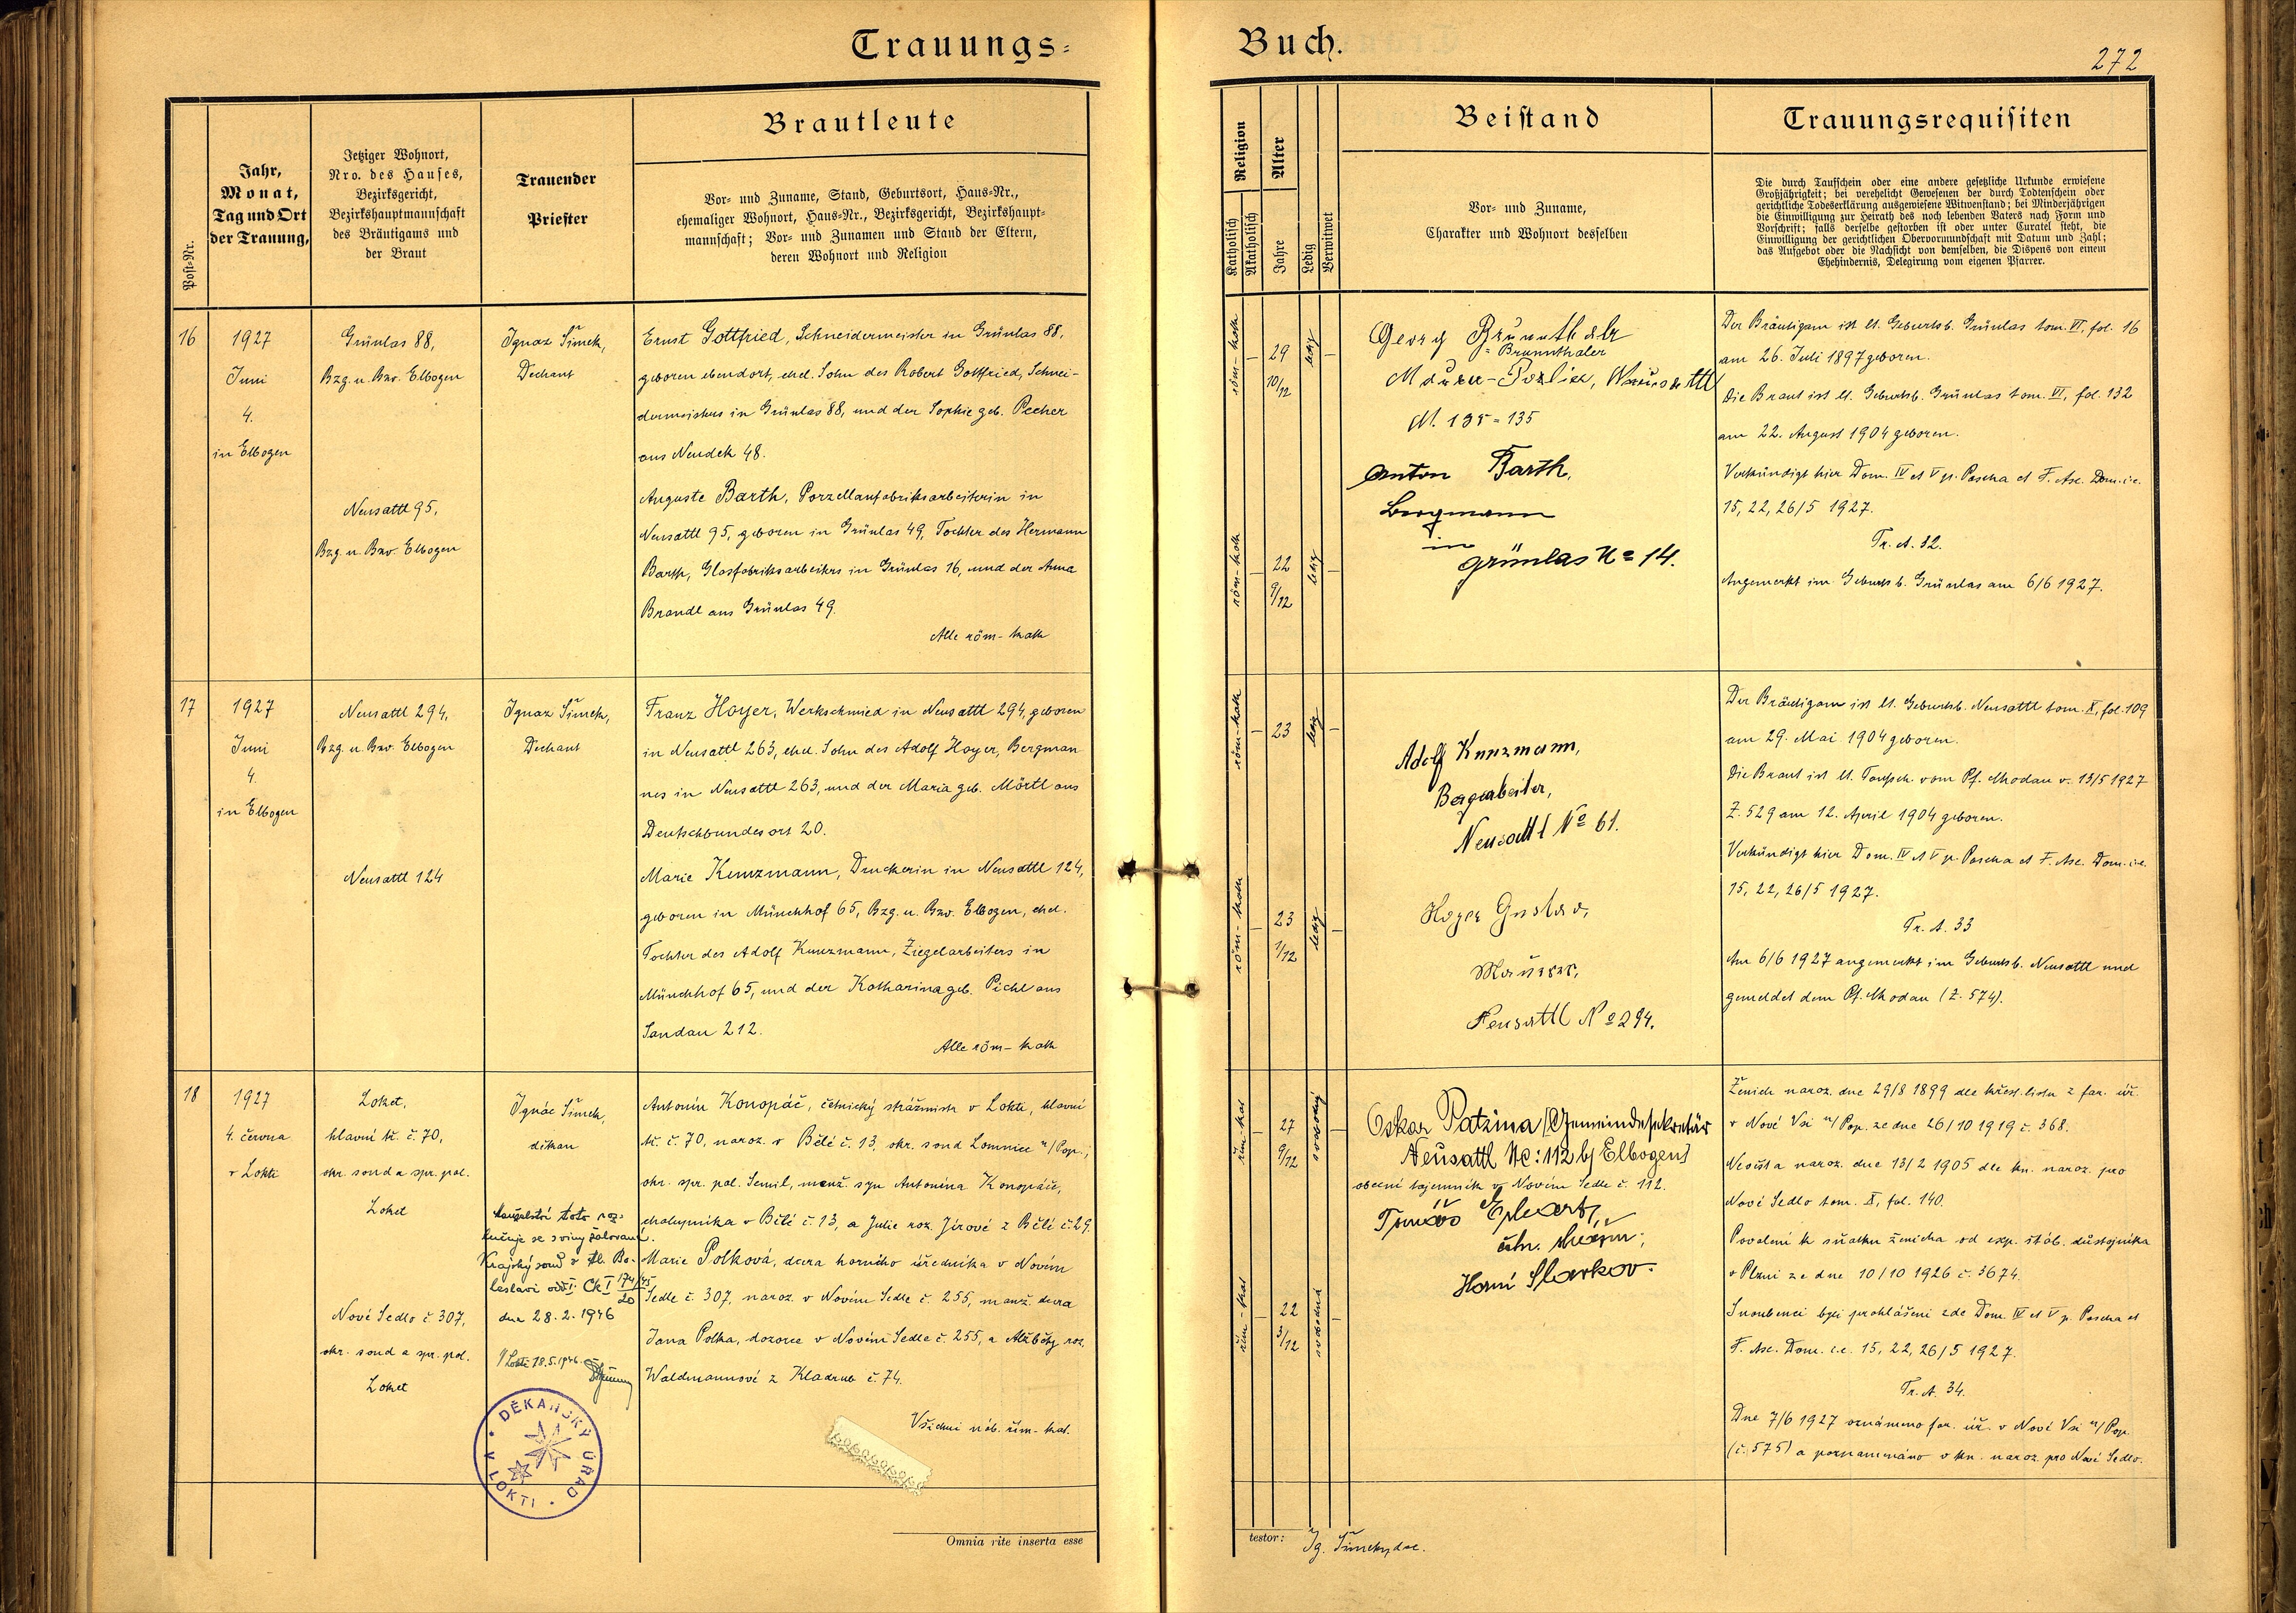 Trauungs=
Buch.
272
Post=Nr.
Jahr,
Monat,
Tag und Ort
der Trauung,
Jetziger Wohnort,
Nro. des Hauses,
Bezirksgericht,
Bezirkshauptmannschaft
des Bräutigams und
der Braut
Trauender
Priester
Brautleute
Vor= und Zuname, Stand, Geburtsort, Haus=Nr.,
ehemaliger Wohnort, Haus=Nr., Bezirksgericht, Bezirkshaupt=
mannschaft; Vor= und Zunamen und Stand der Eltern,
deren Wohnort und Religion
Religion
Katholisch
Akatholisch
Alter
Jahre
Ledig
Verwitwet
Beistand
Vor= und Zuname,
Charakter und Wohnort desselben
Trauungsrequisiten
Die durch Taufschein oder eine andere gesetzliche Urkunde erwiesene
Großjährigkeit; bei verehelicht Gewesenen der durch Todtenschein oder
gerichtliche Todeserklärung ausgewiesene Witwenstand; bei Minderjährigen
die Einwilligung zur Heirath des noch lebenden Vaters nach Form und
Vorschrift; falls derselbe gestorben ist oder unter Curatel steht, die
Einwilligung der gerichtlichen Obervormundschaft mit Datum und Zahl;
das Aufgebot oder die Nachsicht von demselben, die Dispens von einem
Ehehindernis, Delegirung vom eigenen Pfarrer.
16
1927
Juni
4.
in Elbogen
Grünlas 88,
Bzg. u. Bzv. Elbogen
Neusattl 95,
Bzg. u. Bzv. Elbogen
Ignaz Šimek,
Dechant
Ernst Gottfried, Schneidermeister in Grünlas 88,
geboren ebendort, ehel. Sohn des Robert Gottfried, Schnei-
dermeisters in Grünlas 88, und der Sophie geb. Pecher
aus Neudek 48.
Auguste Barth, Porzellanfabriksarbeiterin in
Neusattl 95, geboren in Grünlas 49, Tochter des Hermann
Barth, Glasfabriksarbeiters in Grünlas 16, und der Anna
Brandl aus Grünlas 49.
Alle röm-kath
röm-kath
29
10/12
ledig
röm-kath
22
9/12
ledig
Georg Brünnthaler
= Brunnthaler
Maurer-Polier, Neusattl
N. 135 = 135
Anton Barth,
Bergmann
in
Grünlas No 14.
Der Bräutigam ist lt. Geburtsb. Grünlas tom. VI, fol. 16
am 26. Juli 1897 geboren.
Die Braut ist lt. Geburtsb. Grünlas tom. VI, fol. 132
am 22. August 1904 geboren.
Verkündigt hier Dom. IV et V p. Pascha et F. Asc. Dom. i.e.
15, 22, 26/5 1927.
Tr. A. 32.
Angemerkt im Geburtsb. Grünlas am 6/6 1927.
17
1927
Juni
4.
in Elbogen
Neusattl 294,
Bzg. u. Bzv. Elbogen
Neusattl 124
Ignaz Šimek,
Dechant
Franz Hoyer, Werkschmied in Neusattl 294, geboren
in Neusattl 263, ehel. Sohn des Adolf Hoyer, Bergman
nes in Neusattl 263, und der Maria geb. Mörtl aus
Deutschbundesort 20.
Marie Kunzmann, Druckerin in Neusattl 124,
geboren in Münchhof 65, Bzg. u. Bzv. Elbogen, ehel.
Tochter des Adolf Kunzmann, Ziegelarbeiters in
Münchhof 65, und der Katharina geb. Pichl aus
Sandau 212.
Alle röm-kath
röm-kath
23
ledig
röm-kath
23
1/12
ledig
Adolf Kunzmann,
Bergarbeiter,
Neusattl No 61.
Hoyer Gustav,
Maurer,
Neusattl No 294.
Der Bräutigam ist lt. Geburtsb. Neusattl tom. X, fol. 109
am 29. Mai 1904 geboren.
Die Braut ist lt. Taufsch. vom Pf. Chodau v. 13/5 1927
Z. 529 am 12. April 1904 geboren.
Verkündigt hier Dom. IV et V p. Pascha et F. Asc. Dom. i.e.
15, 22, 26/5 1927.
Tr. A. 33
Am 6/6 1927 angemerkt im Geburtsb. Neusattl und
gemeldet dem Pf. Chodau (Z. 574).
18
1927
4. června
v Lokti
Loket,
hlavní tř. č. 70,
okr. soud a spr. pol.
Loket
Nové Sedlo č. 307,
okr. soud a spr. pol.
Loket
Ignác Šimek,
děkan
Manželství toto roz-
lučuje se z viny žalované.
Krajský soud v Ml. Bo-
leslavi odd. I. Ck I 174/45
20
dne 28.2.1946
V Lokti 18.5.1946.
DĚKANSKÝ ÚŘAD V LOKTI
Antonín Konopáč, četnický strážmistr v Lokti, hlavní
tř. č. 70, naroz. v Bělé č. 13, okr. soud Lomnice n/Pop.,
okr. spr. pol. Semil, manž. syn Antonína Konopáče,
chalupníka v Bělé č. 13, a Julie roz. Jírové z Bělé č. 29.
Marie Polková, dcera horního úředníka v Novém
Sedle č. 307, naroz. v Novém Sedle č. 255, manž. dcera
Jana Polka, dozorce v Novém Sedle č. 255, a Alžběty roz.
Waldmannové z Kladrub č. 74.
Všichni náb. řím-kat.
řím-kat
27
9/12
svobodný
řím-kat
22
3/12
svobodná
Oskar Patzina (Gemeindesekretär
Neusattl No: 112 b/ Elbogen)
obecní tajemník v Novém Sedle č. 112.
Horní Slavkov.
Ženich naroz. dne 29/8 1899 dle křest. listu z far. úř.
v Nové Vsi n/Pop. ze dne 26/10 1919 č. 368.
Nevěsta naroz. dne 13/2 1905 dle kn. naroz. pro
Nové Sedlo tom. X, fol. 140.
Povolení k sňatku ženicha od exp. štáb. důstojníka
v Plzni ze dne 10/10 1926 č. 3674.
Snoubenci byli prohlášeni zde Dom. IV et V p. Pascha et
F. Asc. Dom. i.e. 15, 22, 26/5 1927.
Tr. A. 34.
Dne 7/6 1927 oznámeno far. úř. v Nové Vsi n/Pop.
(č. 575) a poznamenáno v kn. naroz. pro Nové Sedlo.
Omnia rite inserta esse
testor:
Ig. Šimek, dec.